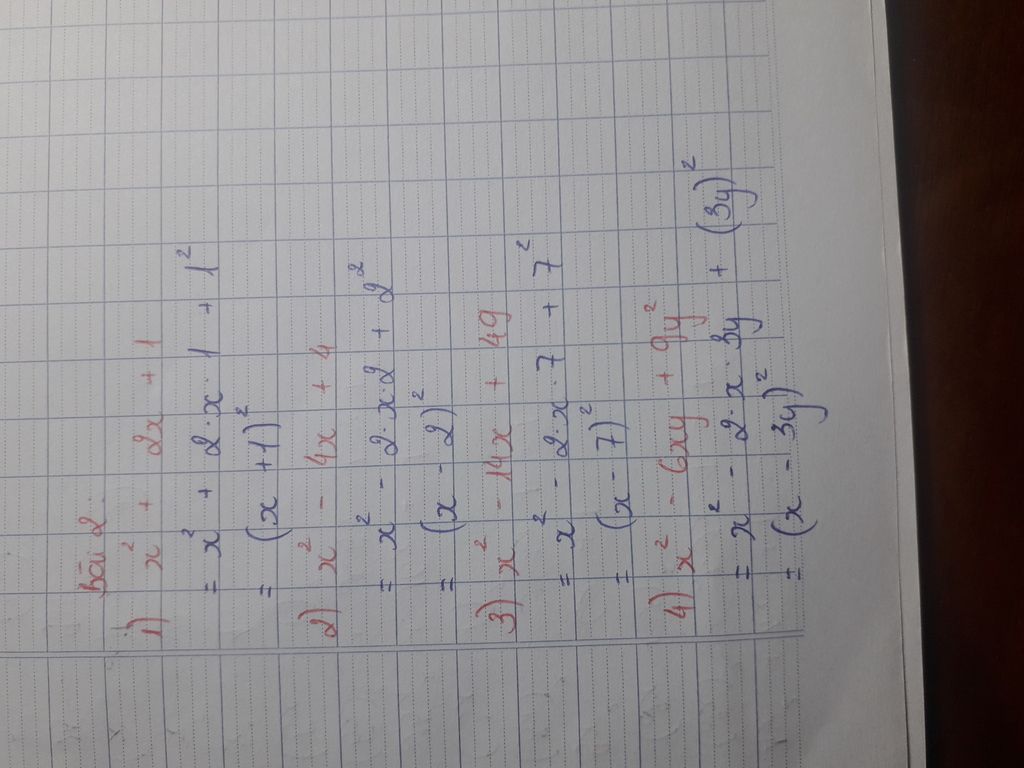 Bài 2
1) x² + 2x + 1
= x² + 2·x·1 + 1²
= (x + 1)²
2) x² - 4x + 4
= x² - 2·x·2 + 2²
= (x - 2)²
3) x² - 14x + 49
= x² - 2·x·7 + 7²
= (x - 7)²
4) x² - 6xy + 9y²
= x² - 2·x·3y + (3y)²
= (x - 3y)²